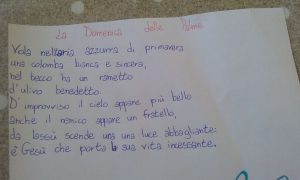 La Domenica delle Palme
Vola nell'aria azzurra di primavera
una colomba bianca e sincera,
nel becco ha un rametto
d'ulivo benedetto.
D'improvviso il cielo appare più bello
anche il nemico appare un fratello,
da lassù scende una una luce abbagliante:
è Gesù che porta la sua vita incessante.